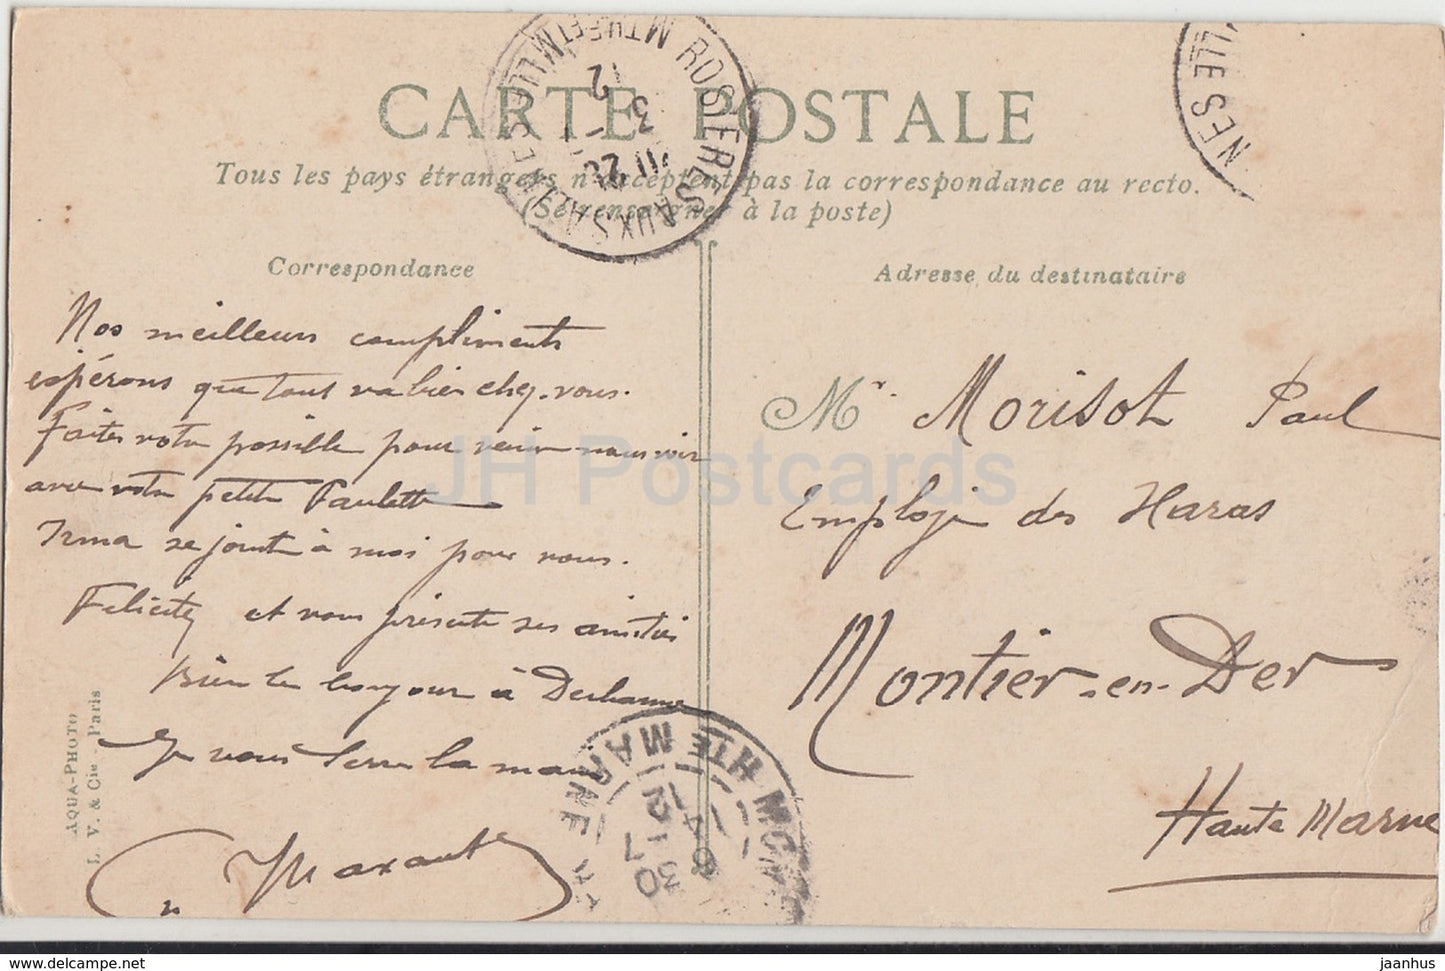 CARTE POSTALE
Tous les pays étrangers n'acceptent pas la correspondance au recto.
(Se renseigner à la poste)
Correspondance
Nos meilleurs compliments
espérons que tout va bien chez-vous.
Faites votre possible pour venir nous voir
avec votre petite Paulette
Irma se joint à moi pour vous.
Felicitez et vous présente ses amitiés
Bien le bonjour à
Je vous serre la main
Adresse du destinataire
Mr. Morisot Paul
Employé des Haras
Montier-en-Der
Haute Marne
AQUA-PHOTO
L. V. & Cie - Paris
ROSIERES AUX SALINES
MTHE ET MLLE
HTE MARNE
NES
LLE
JH Postcards
www.delcampe.net
jaanhus